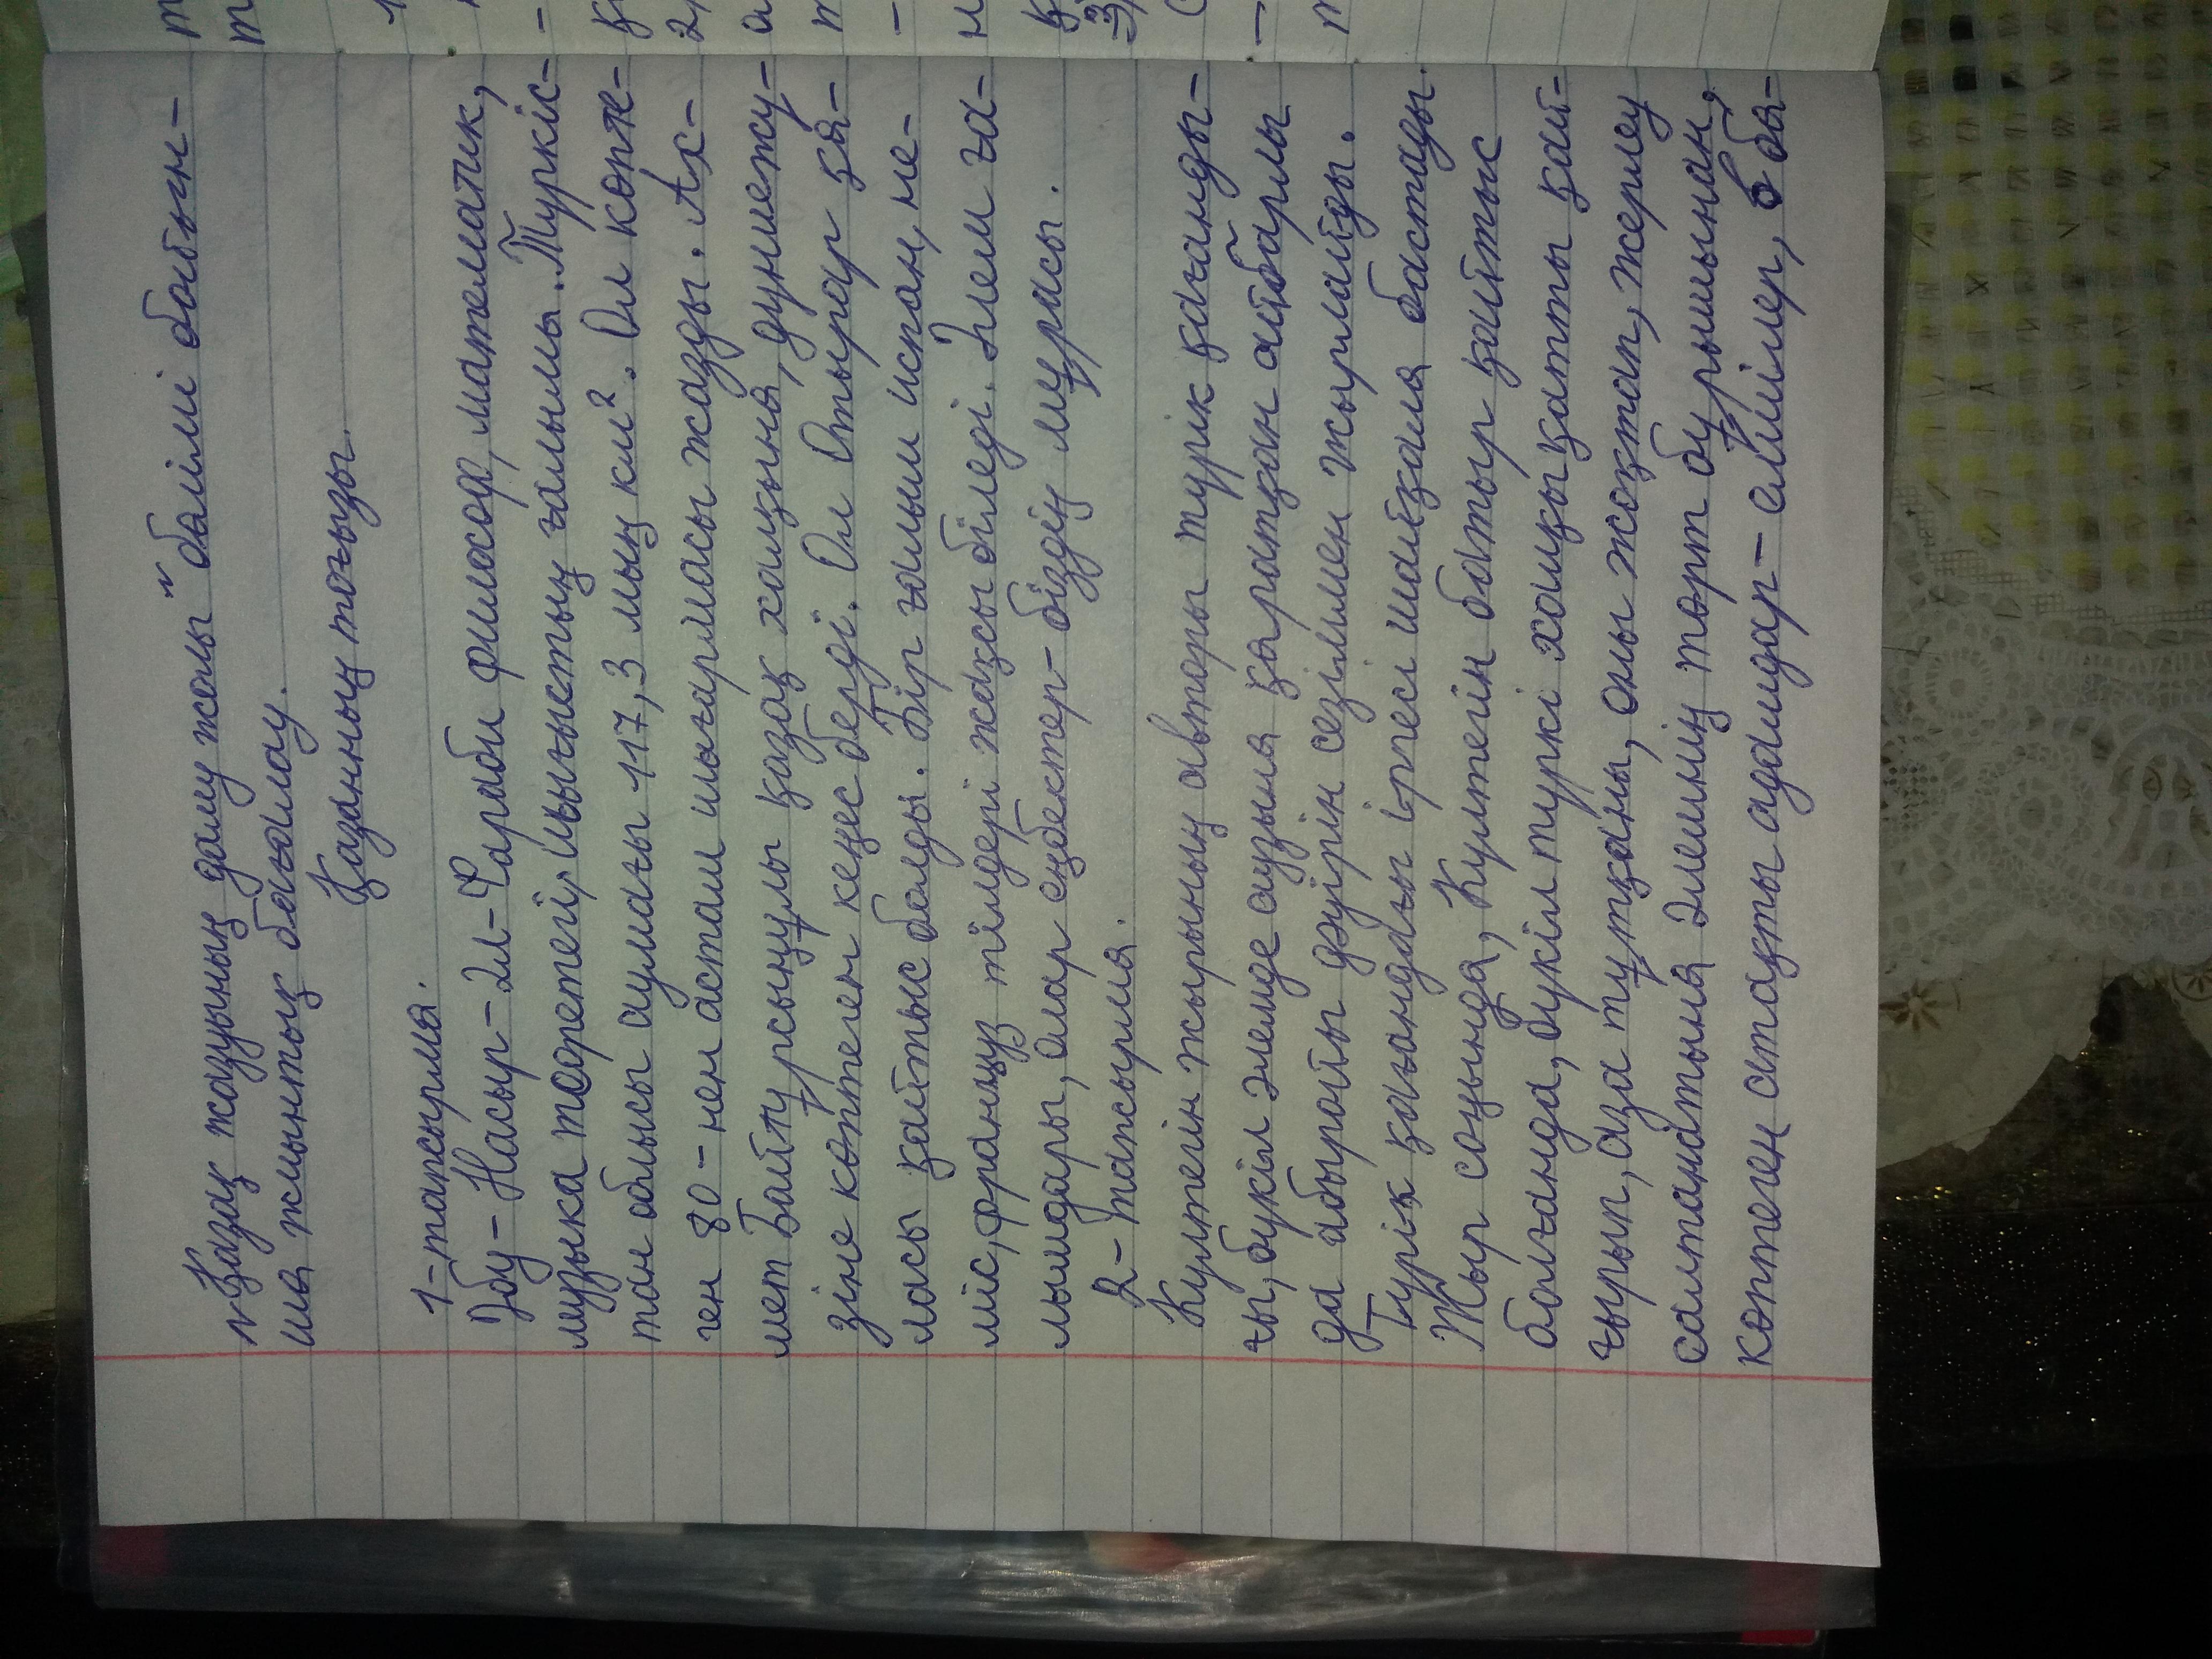 "Қазақ жазуының даму жолы" бөлімі бойын-
ша жиынтық бағалау.
Қазанның тоғызы.
1-тапсырма.
Әбу-Насыр-Әл-Фараби философ, математик,
музыка теоретегі, шығыстың ғалымы. Түркіс-
тан облысы аумағы 117,3 мың км². Ол көпте-
ген 80-нен астам шығармасы жазды. Ах-
мет Байтұрсынұлы қазақ халқына, дүниежү-
зіне көптеген кеңес берді. Ол Отырар қа-
ласы қайтыс болды. Бір ғалым испан, не-
міс, француз тілдері жақсы біледі. Әлем ға-
лымдары, олар еңбектер-біздің мұрасы.
2-тапсырма.
Күлтегін жырының авторы түрік қағанды-
ғы, бүкіл әлемде аузына қаратқан айбарлы
да абыройты дәуірін сезіммен жырлайды.
Түрік қағандағы іргесі шайқала бастады.
Жыр соңында, Күлтегін батыр қайтыс
болғанда, бүкіл түркі халқы қатты қай-
ғырып, аза тұтқаны, оны жоқтап, жерлеу
салтанатына әлемнің төрт бұрышынан,
көптеген атақты адамдар-елшілер, бба-